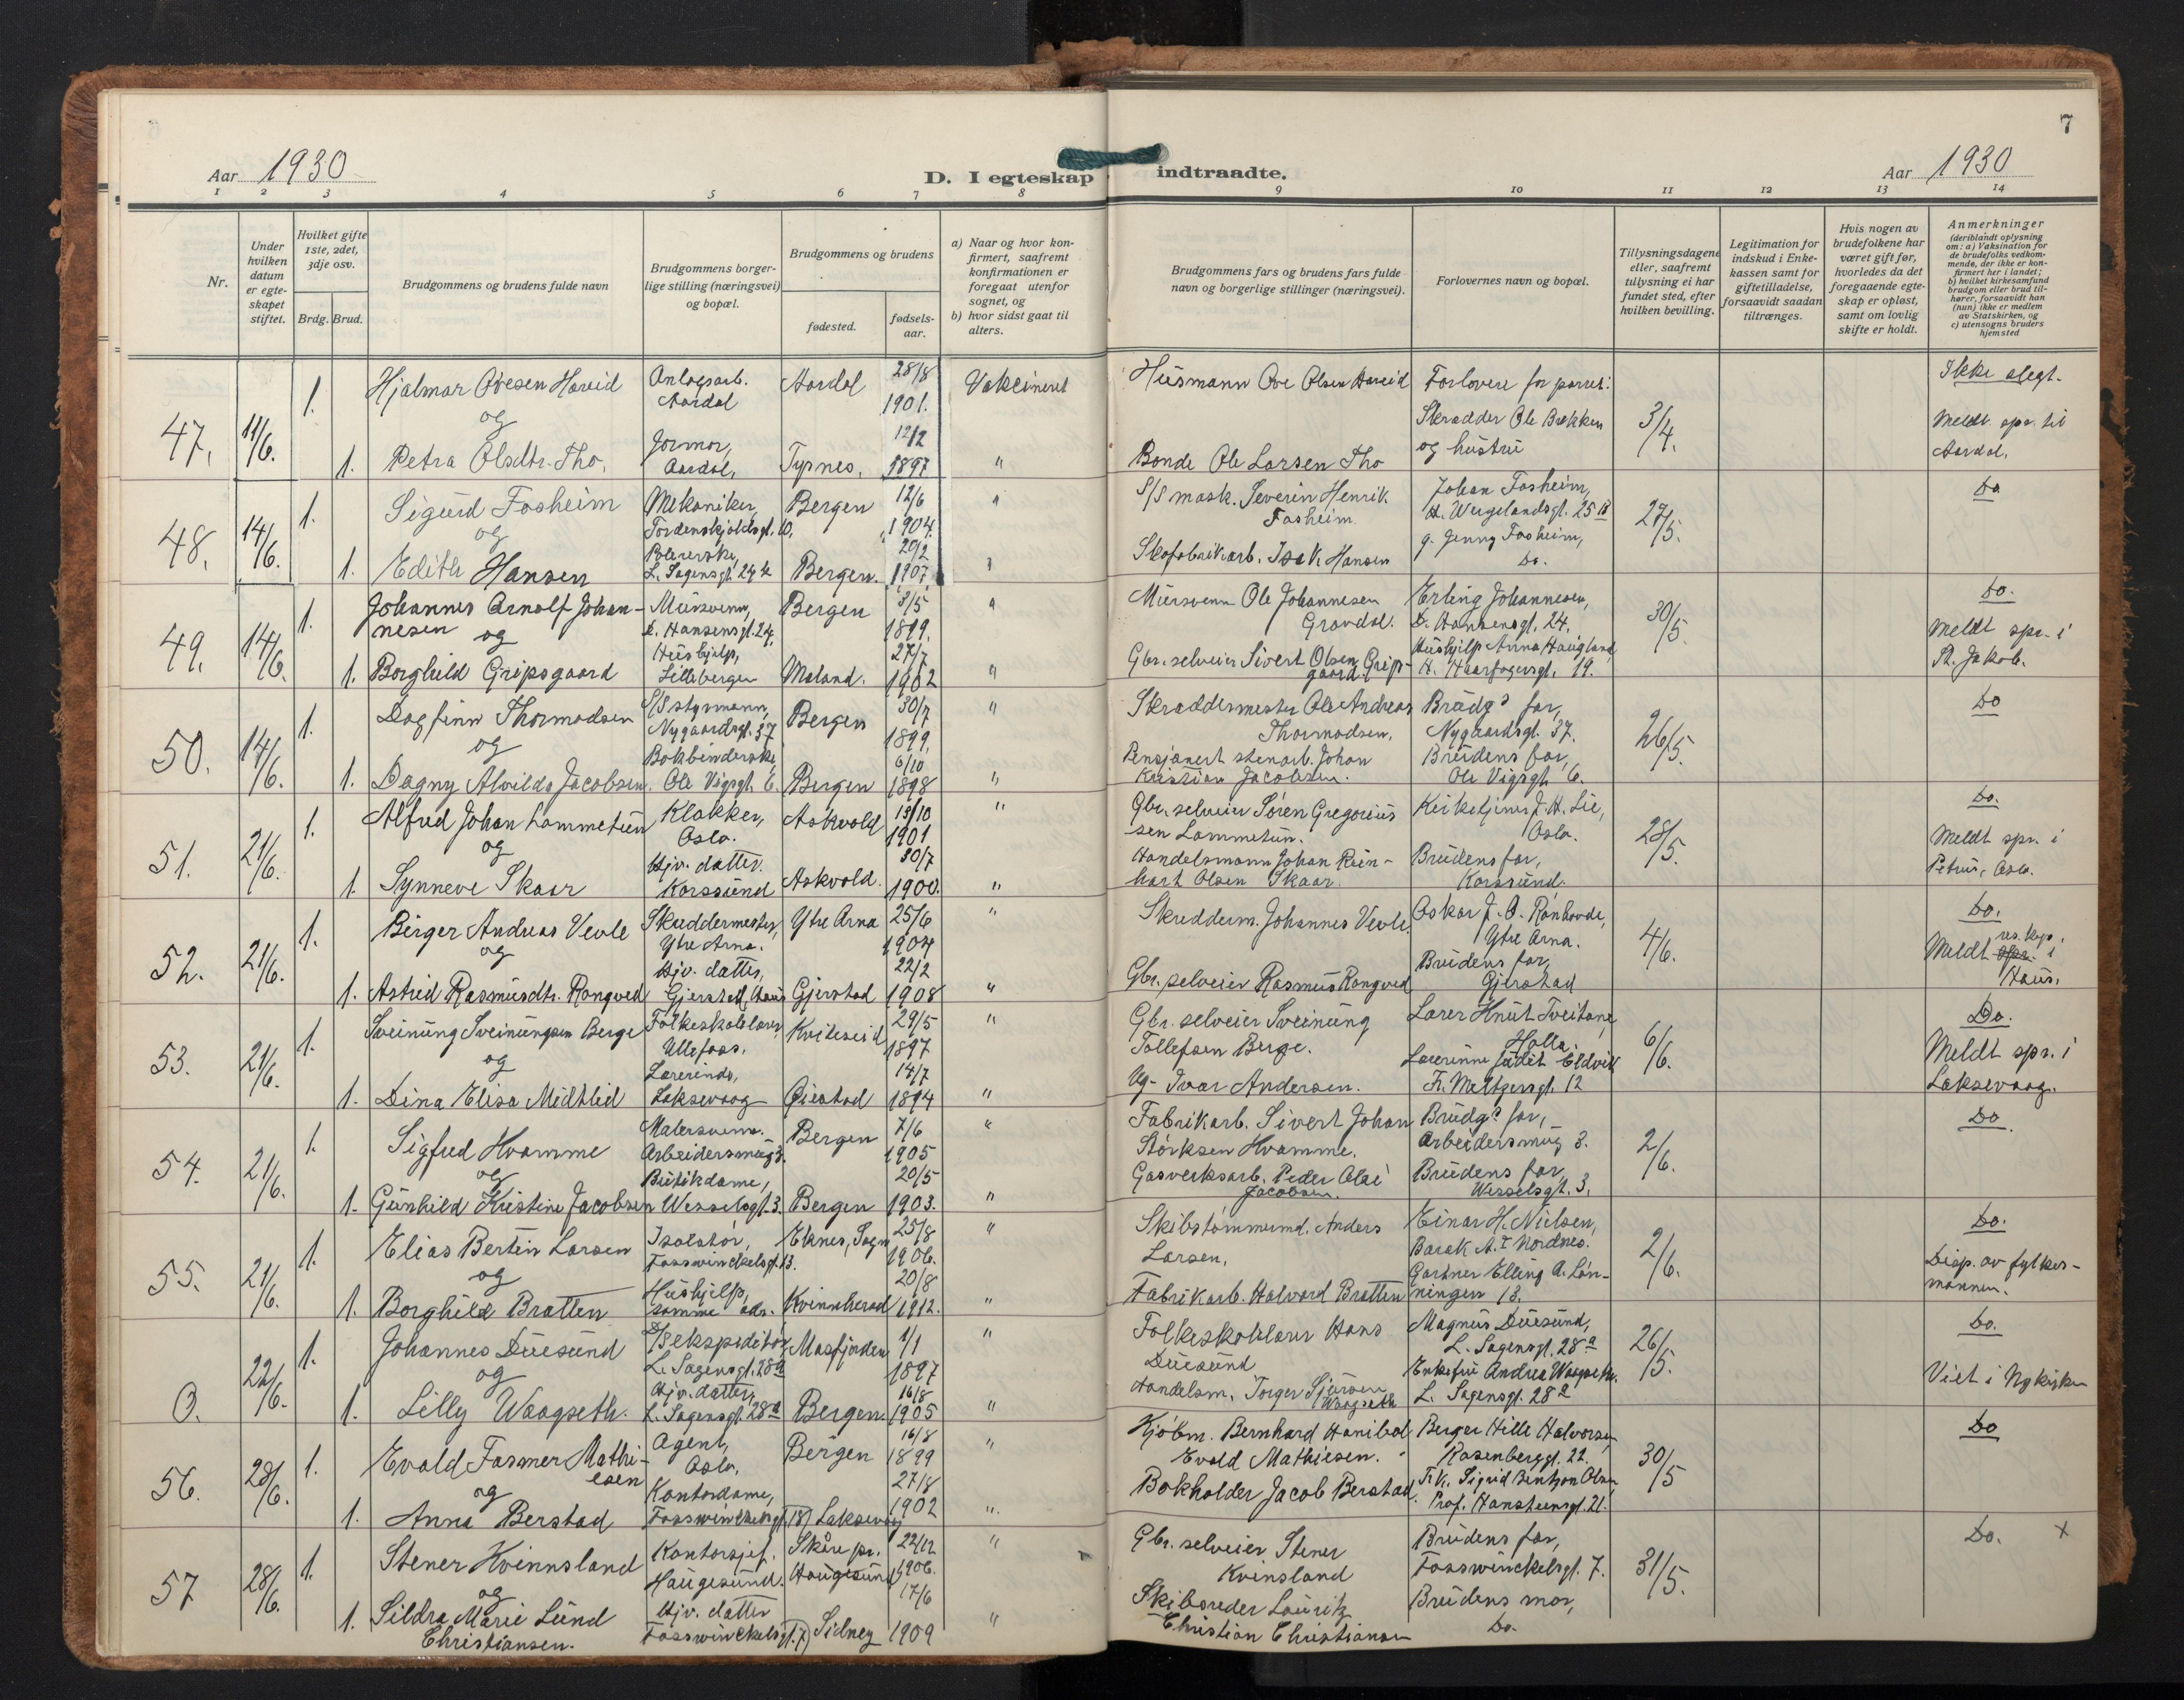 7
Aar 1930
D. I egteskap indtraadte.
Aar 1930
1 2 3 4 5 6 7 8 9 10 11 12 13 14
Nr.
Under hvilken datum er egteskapet stiftet.
Hvilket gifte 1ste, 2det, 3dje osv.
Brdg. Brud.
Brudgommens og brudens fulde navn
Brudgommens borgerlige stilling (næringsvei) og bopæl.
Brudgommens og brudens
fødested.
fødselsaar.
a) Naar og hvor konfirmert, saafremt konfirmationen er foregaat utenfor sognet, og
b) hvor sidst gaat til alters.
Brudgommens fars og brudens fars fulde navn og borgerlige stillinger (næringsvei).
Forlovernes navn og bopæl.
Tillysningsdagene eller, saafremt tillysning ei har fundet sted, efter hvilken bevilling.
Legitimation for indskud i Enkekassen samt for giftetilladelse, forsaavidt saadan tiltrænges.
Hvis nogen av brudefolkene har været gift før, hvorledes da det foregaaende egteskap er opløst, samt om lovlig skifte er holdt.
Anmerkninger
(deriblandt oplysning om: a) Vaksination for de brudefolks vedkommende, der ikke er konfirmert her i landet; b) hvilket kirkesamfund brudgom eller brud tilhører, forsaavidt han (hun) ikke er medlem av Statskirken, og c) utensogns bruders hjemsted
47. 11/6. 1. Hjalmar Ovesen Hareid Anlegsarb. Aardal Aardal 28/8 1901. Vakcineret Husmann Ove Olsen Hareid Forlovere for parret: Skrædder Ole Bækken og hustru 3/4. Ikke slegt. Meldt spr. til Aardal.
og
1. Petra Olsdtr. Tho. Jormor, Aardal, Tysnes. 12/2 1897 " Bonde Ole Larsen Tho
48. 14/6. 1. Sigurd Fosheim Mekaniker, Tordenskjoldsgt. 10. Bergen 12/6 1904. " S/S mask. Severin Henrik Fosheim Johan Fosheim, H. Wergelandsgt. 25 B 27/5. Do.
og
1. Edith Hansen Polererske, L. Sagensgt. 24 Bergen. 20/2 1907. " Skofabrikarb. Isak Hansen g. Jenny Fosheim, Do.
49. 14/6. 1. Johannes Arnolf Johannesen Mursvenn, D. Hansensgt. 24. Bergen 3/5 1899. " Mursvenn Ole Johannesen Gravdal. Erling Johannesen, D. Hansensgt. 24. 30/5. Do. Meldt spr. i St. Jakob.
og
1. Borghild Gripsgaard Hushjelp, Lillebergen Meland. 27/7 1902 " Gbr. selveier Sivert Olsen Gripsgaard. Hushjelp Anna Haugland, H. Haarfagersgt. 19.
50. 14/6. 1. Dagfinn Thormodsen S/S styrmann, Nygaardsgt. 37 Bergen 30/7 1899. " Skræddermester Ole Andreas Thormodsen. Brudgs far, Nygaardsgt. 37. 26/5. Do
og
1. Dagny Alvilda Jacobsen. Bokbinderske, Ole Vigsgt. 6. Bergen 6/10 1898 " Pensjonert stenarb. Johan Kristian Jacobsen. Brudens far, Ole Vigsgt. 6.
51. 21/6. 1. Alfred Johan Lammetun Klokker, Oslo. Askvold 13/10 1901 " Gbr. selveier Søren Gregoriussen Lammetun. Kirketjener J. H. Lie, Oslo. 28/5. Do. Meldt spr. i Petrus, Oslo.
og
1. Synneve Skaar Hjv. datter. Korssund Askvold. 30/7 1900. " Handelsmann Johan Reinhart Olsen Skaar. Brudens far, Korssund.
52. 21/6. 1. Birger Andreas Vevle Skreddermester, Ytre Arna. Ytre Arna 25/6 1904 " Skredderm. Johannes Vevle. Oskar J. O. Rønhovde, Ytre Arna. 4/6. Do. Meldt res. kap. i Haus.
og
1. Astrid Rasmusdtr. Rongved Hjv. datter, Gjerstad, Haus Gjerstad 22/2 1908 " Gbr. selveier Rasmus Rongved Brudens far, Gjerstad
53. 21/6. 1. Sveinung Sveinungsen Berge Folkeskolelærer, Ullefoss. Kviteseid 29/5 1897 " Gbr. selveier Sveinung Tollefsen Berge. Lærer Knut Tveitane, Holla. 6/6. Do. Meldt spr. i Laksevaag.
og
1. Dina Elisa Midtlid Lærerinde, Laksevaag Øiestad 14/7 1894 " Ug- Ivar Andersen. Lærerinne Judit Eldvik Fr. Meltzersgt. 12
54. 21/6. 1. Sigfred Hvamme Malersvenn. Arbeidersmug 3. Bergen 7/6 1905 " Fabrikarb. Sivert Johan Størksen Hvamme. Brudgs far, Arbeidersmug 3. 2/6. Do.
og
1. Gunhild Kristine Jacobsen Butikdame, Wesselsgt. 3. Bergen 20/5 1903. " Gasverksarb. Peder Olai Jacobsen. Brudens far, Wesselsgt. 3.
55. 21/6. 1. Elias Bertin Larsen Isolatør, Fosswinckelsgt. 13. Eknes, Sogn 25/8 1906. " Skibstømmermd. Anders Larsen. Einar H. Nielsen, Barak A. I Nordnes. 2/6. Do. Disp. av fylkesmannen.
og
1. Borghild Bratten Hushjelp, samme adr. Kvinnherad 20/8 1912. " Fabrikarb. Halvard Bratten Gartner Elling A. Lønningen 13.
0. 22/6. 1. Johannes Duesund D/S ekspeditør, L. Sagensgt. 28a Masfjorden 1/1 1897 " Folkeskolelærer Hans Duesund Magnus Duesund, L. Sagensgt. 28a 26/5. Do. Viet i Nykirken
og
1. Lilly Waagseth. Hjv. datter, L. Sagensgt. 28a Bergen. 16/8 1905 " Handelsm. Torger Sjursen Waagseth Enkefru Andrea Waagseth. L. Sagensgt. 28a
56. 28/6. 1. Evald Fasmer Mathiesen Agent, Oslo. Bergen 16/8 1899 " Kjøbm. Bernhard Hanibal Evald Mathiesen. Berger Hille Halvorsen Rosenberggt. 22. 30/5 Do
og
1. Anna Berstad Kontordame, Fosswinckelsgt. 18) Laksevaag 27/8 1902 " Bokholder Jacob Berstad. Frk. Sigrid Bentzon Olsen Prof. Hansteensgt. 21.
57 28/6. 1. Stener Kvinnsland Kontorsjef. Haugesund. Skåre pr. Haugesund 22/12 1906. " Gbr. selveier Stener Kvinsland Brudens far, Fosswinckelsgt. 7. 31/5. Do. x
og
1. Sildra Marie Lund Christiansen. Hjv. datter Fosswinckelsgt. 7) Sidney 17/6 1909 " Skibsreder Lauritz Christian Christiansen Brudens mor, Do.